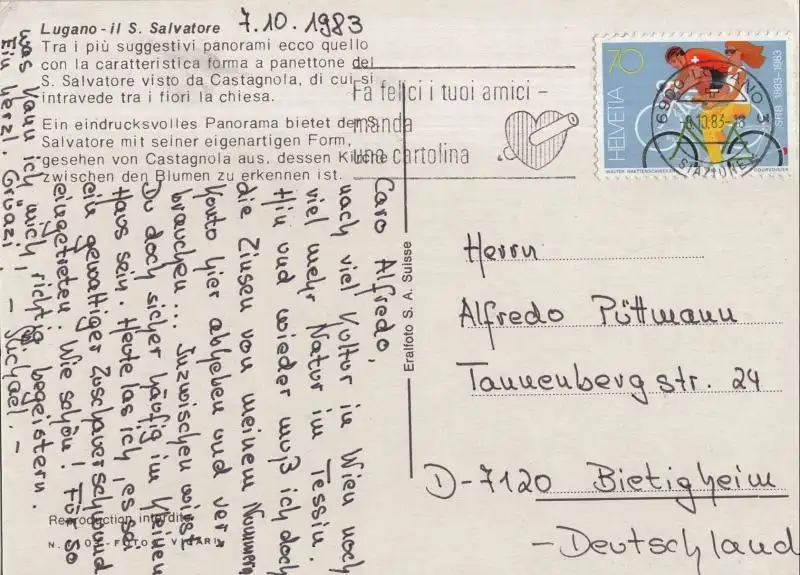 Lugano - il S. Salvatore
7.10.1983
Tra i più suggestivi panorami ecco quello
con la caratteristica forma a panettone del
S. Salvatore visto da Castagnola, di cui si
intravede tra i fiori la chiesa.
Ein eindrucksvolles Panorama bietet der S.
Salvatore mit seiner eigenartigen Form,
gesehen von Castagnola aus, dessen Kirche
zwischen den Blumen zu erkennen ist.
Fa felici i tuoi amici -
manda
una cartolina
70
HELVETIA
SRB 1883-1983
6900 LUGANO 3
10.83-18
STAZIONE
COURVOISIER
Caro Alfredo,
nach viel Kultur in Wien noch
viel mehr Natur im Tessin.
Hin und wieder muß ich doch
die Zinsen von meinem Nummern
konto hier abheben und ver-
brauchen... Inzwischen weist
Du doch sicher häufig im kleinen
Haus sein. Heute las ich, es sei
ein gewaltiger Zuschauerschwund
eingetreten. Wie schön! Für so
was kann ich mich richtig begeistern.
Ein herzl. Grüazi, - Michael. -
Eralfoto S. A. Suisse
Herrn
Alfredo Püttmann
Tannenbergstr. 24
D-7120 Bietigheim
- Deutschland
Reproduction interdite
FOTO VICARI